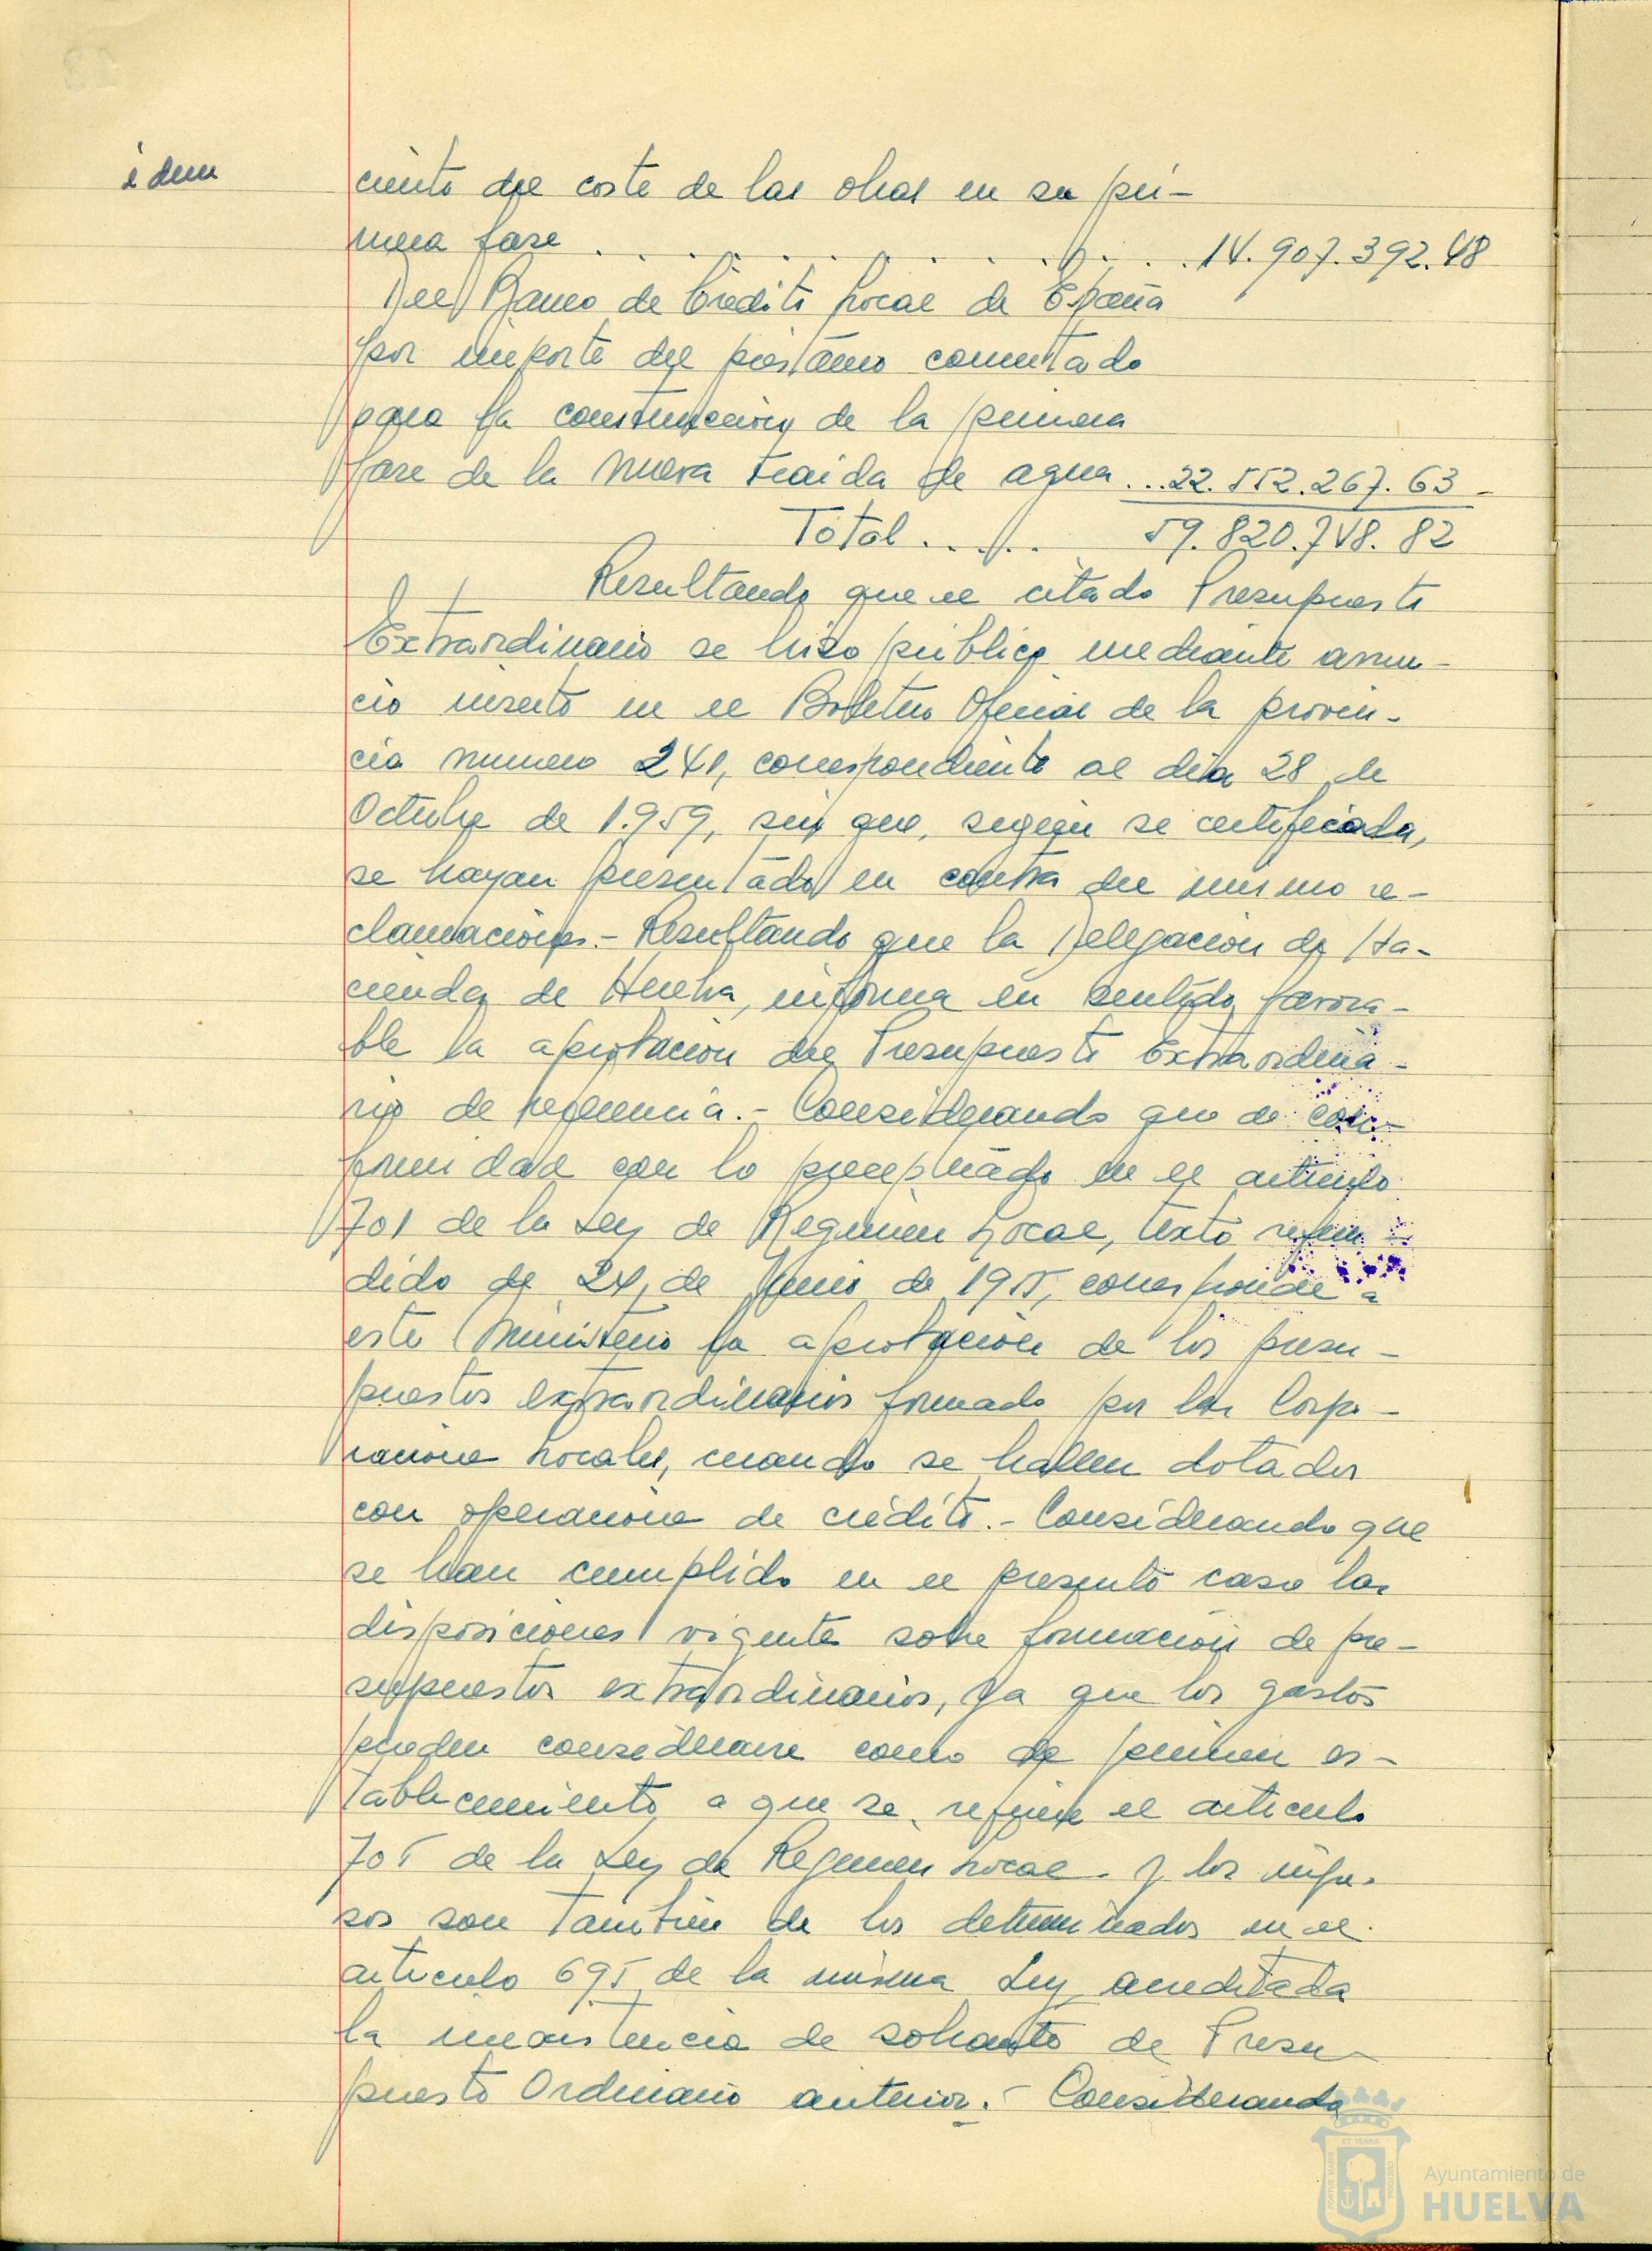 idem
ciento del coste de las obras en su pri-
mera fase . . . . . . . . . . . 14.907.392.48
Del Banco de Crédito Local de España
por importe del préstamo concertado
para la construcción de la primera
fase de la nueva traida de agua ... 22.552.267.63 -
Total ...... 59.820.748.82
Resultando que el citado Presupuesto
Extraordinario se hizo público mediante anun-
cio inserto en el Boletin Oficial de la provin-
cia numero 241, correspondiente al dia 28 de
Octubre de 1.959, sin que, según se certificada,
se hayan presentado en contra del mismo re-
clamaciones.- Resultando que la Delegacion de Ha-
cienda de Huelva, informa en sentido favora-
ble la aprobacion del Presupuesto Extraordina-
rio de referencia.- Considerando que de con-
formidad con lo preceptuado en el articulo
701 de la Ley de Regimen Local, texto refun-
dido de 24, de Junio de 1955, corresponde a
este Ministerio la aprobacion de los presu-
puestos extraordinarios formado por las Corpo-
raciones Locales, cuando se hallen dotados
con operaciones de crédito.- Considerando que
se han cumplido en el presente caso las
disposiciones vigentes sobre formacion de pre-
supuestos extraordinarios, ya que los gastos
pueden considerarse como de primer es-
tablecimiento a que se refiere el articulo
705 de la Ley de Regimen Local y los ingre-
sos son tambien de los determinados en el
articulo 695 de la misma Ley, acreditada
la inexistencia de sobrante de Presu-
puesto Ordinario anterior.- Considerando
Ayuntamiento de
HUELVA